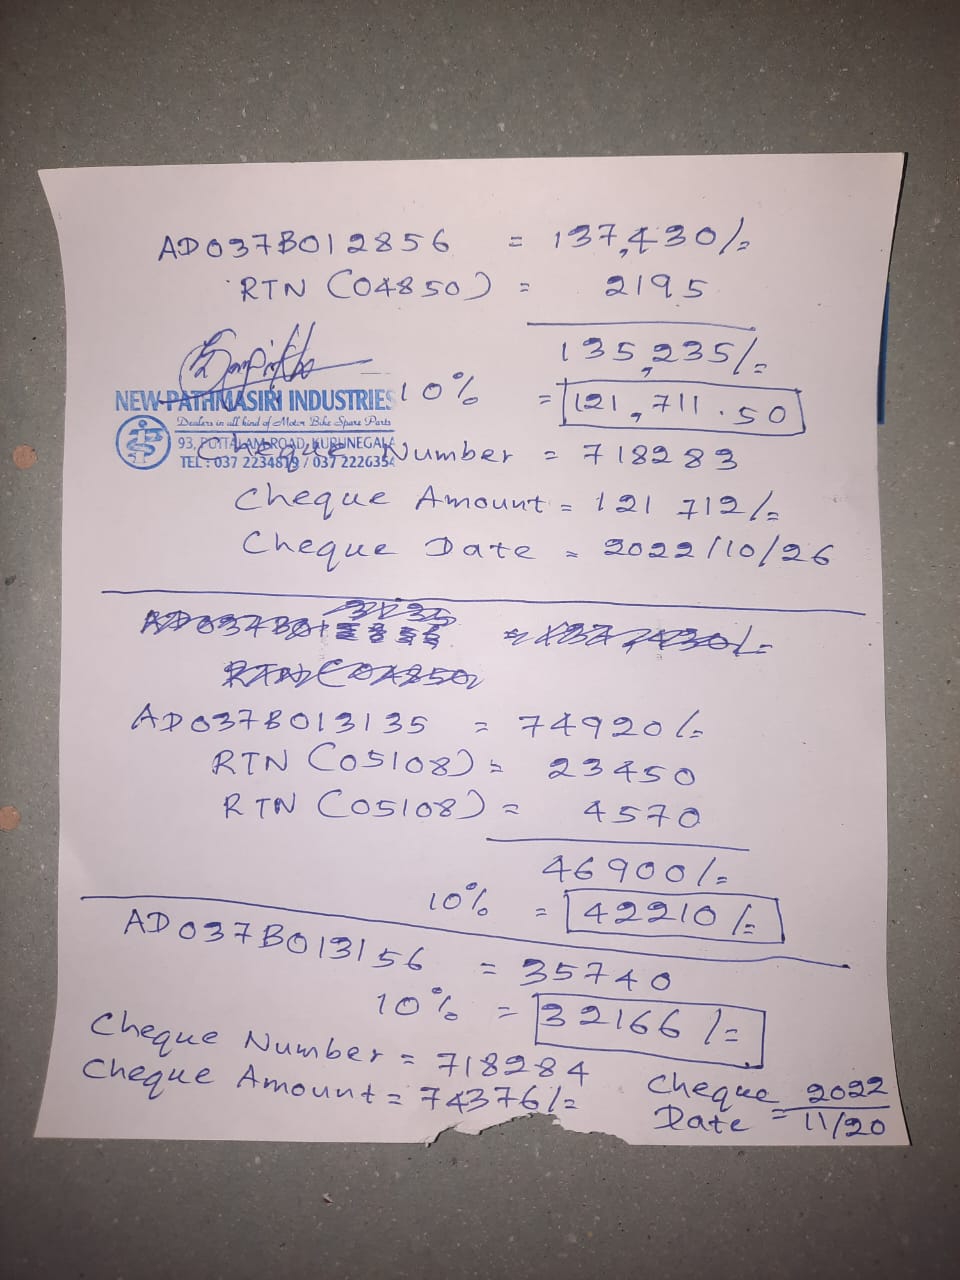 AD037B012856 = 137,430/=
RTN (04850) = 2195
135,235/=
10% = 121,711.50
NEW PATHMASIRI INDUSTRIES
Dealers in all kind of Motor Bike Spare Parts
93, PUTTALAM ROAD, KURUNEGALA
TEL : 037 2234819 / 037 2226354
Cheque Number = 718283
Cheque Amount = 121 712/=
Cheque Date = 2022/10/26
AD037B013135 = 74920/=
RTN (05108) = 23450
RTN (05108) = 4570
46900/=
10% = 42210/=
AD037B013156 = 35740
10% = 32166/=
Cheque Number = 718284
Cheque Amount = 74376/=
Cheque Date = 2022 11/20